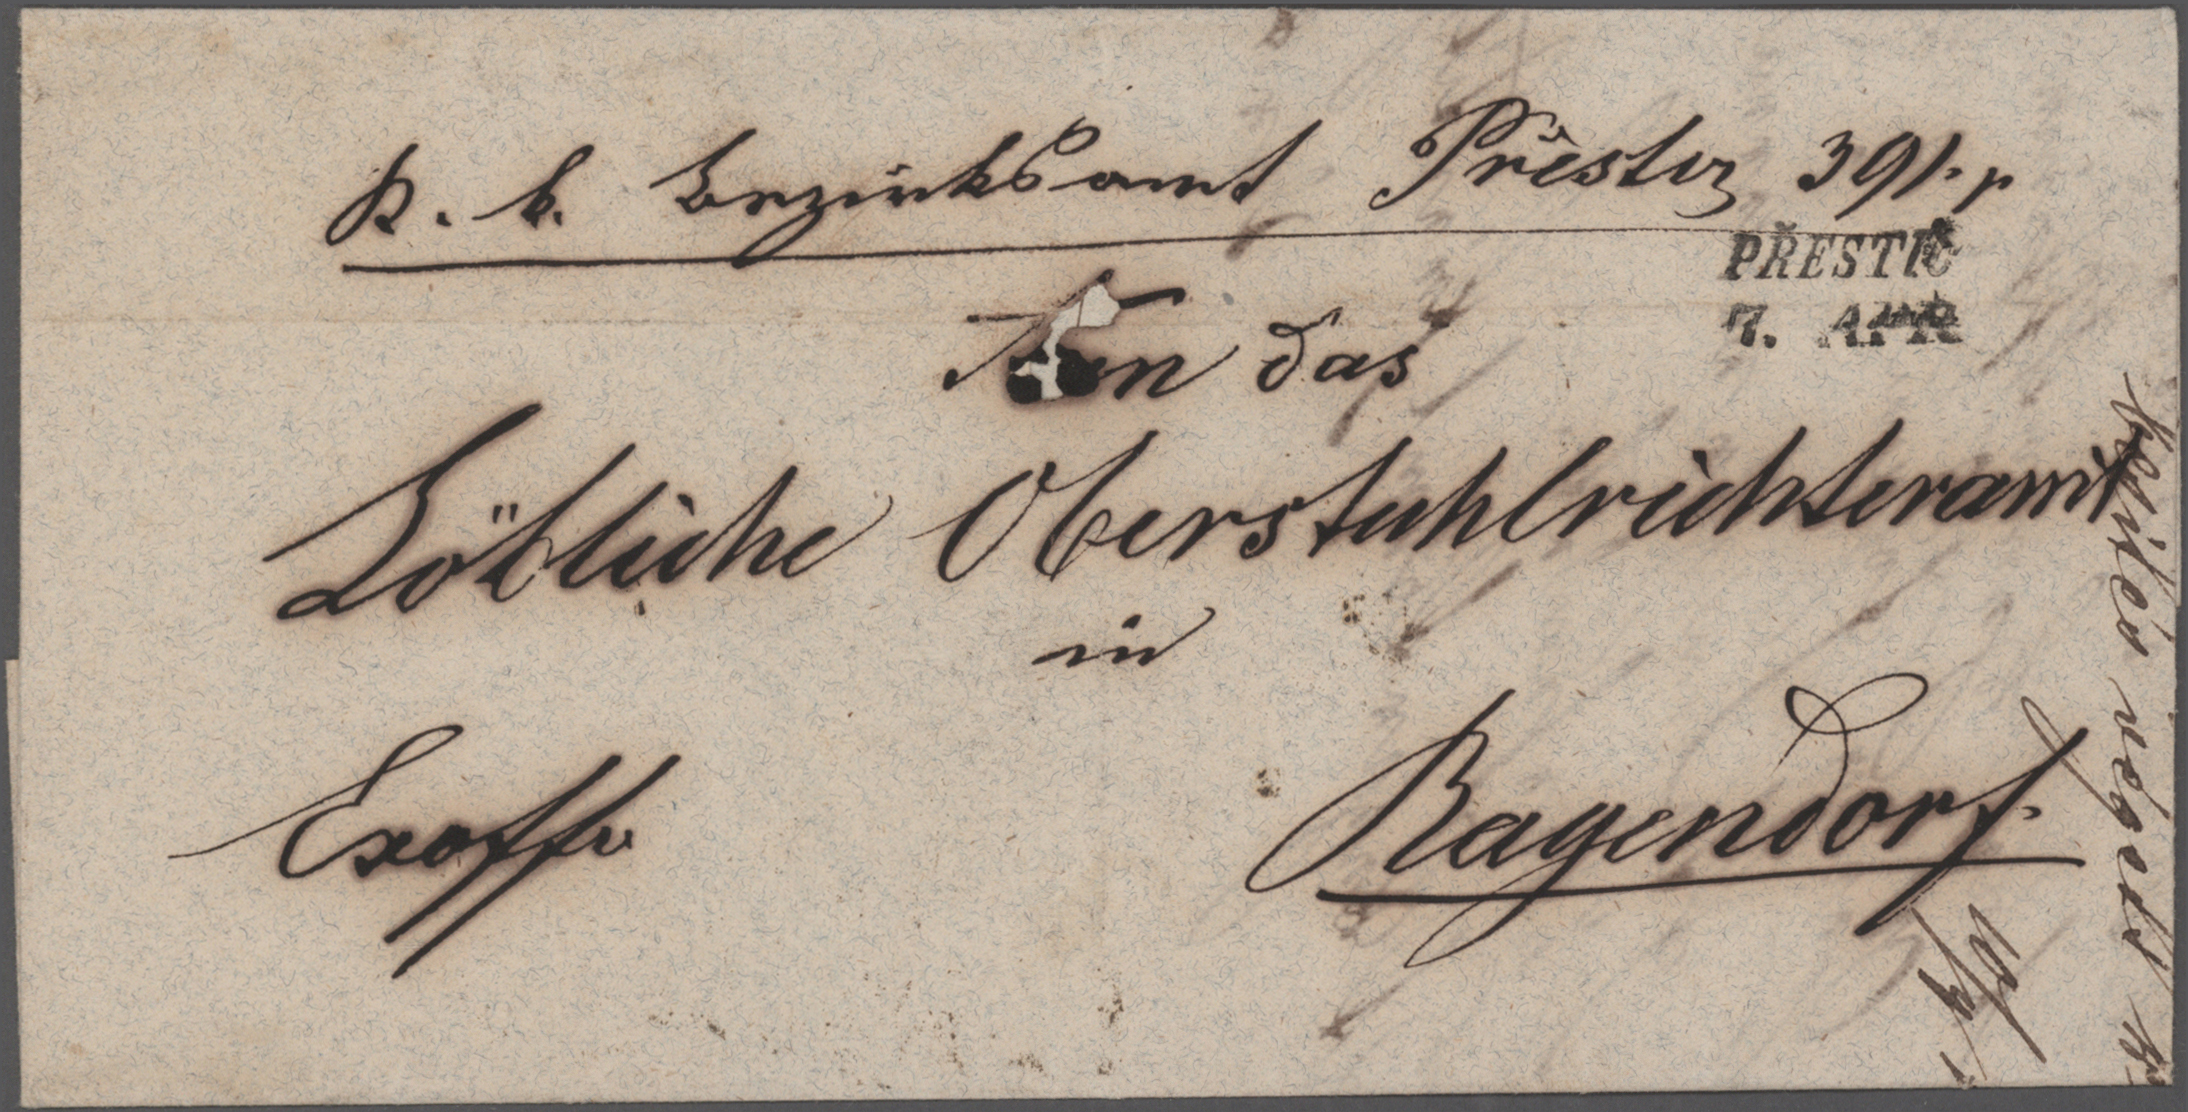 K. k. Bezirksamt Přestiz 391. p
PŘESTIC
7. APR
An das
Löbliche Oberstuhlrichteramt
in
Exoffo
Ragendorf.